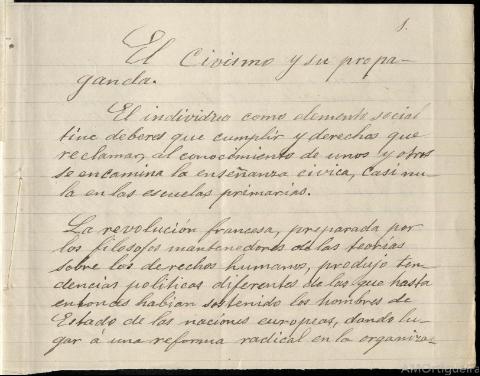 1.
El Civismo y su propa-
ganda.
El individuo como elemento social
tiene deberes que cumplir y derechos que
reclamar, al conocimiento de unos y otros
se encamina la enseñanza cívica, casi nu-
la en las escuelas primarias.
La revolución francesa, preparada por
los filósofos mantenedores de las teorías
sobre los derechos humanos, produjo ten-
dencias políticas diferentes de las que hasta
entonces habían sostenido los hombres de
Estado de las naciones europeas, dando lu-
gar a una reforma radical en la organiza-
AMOrtigueira